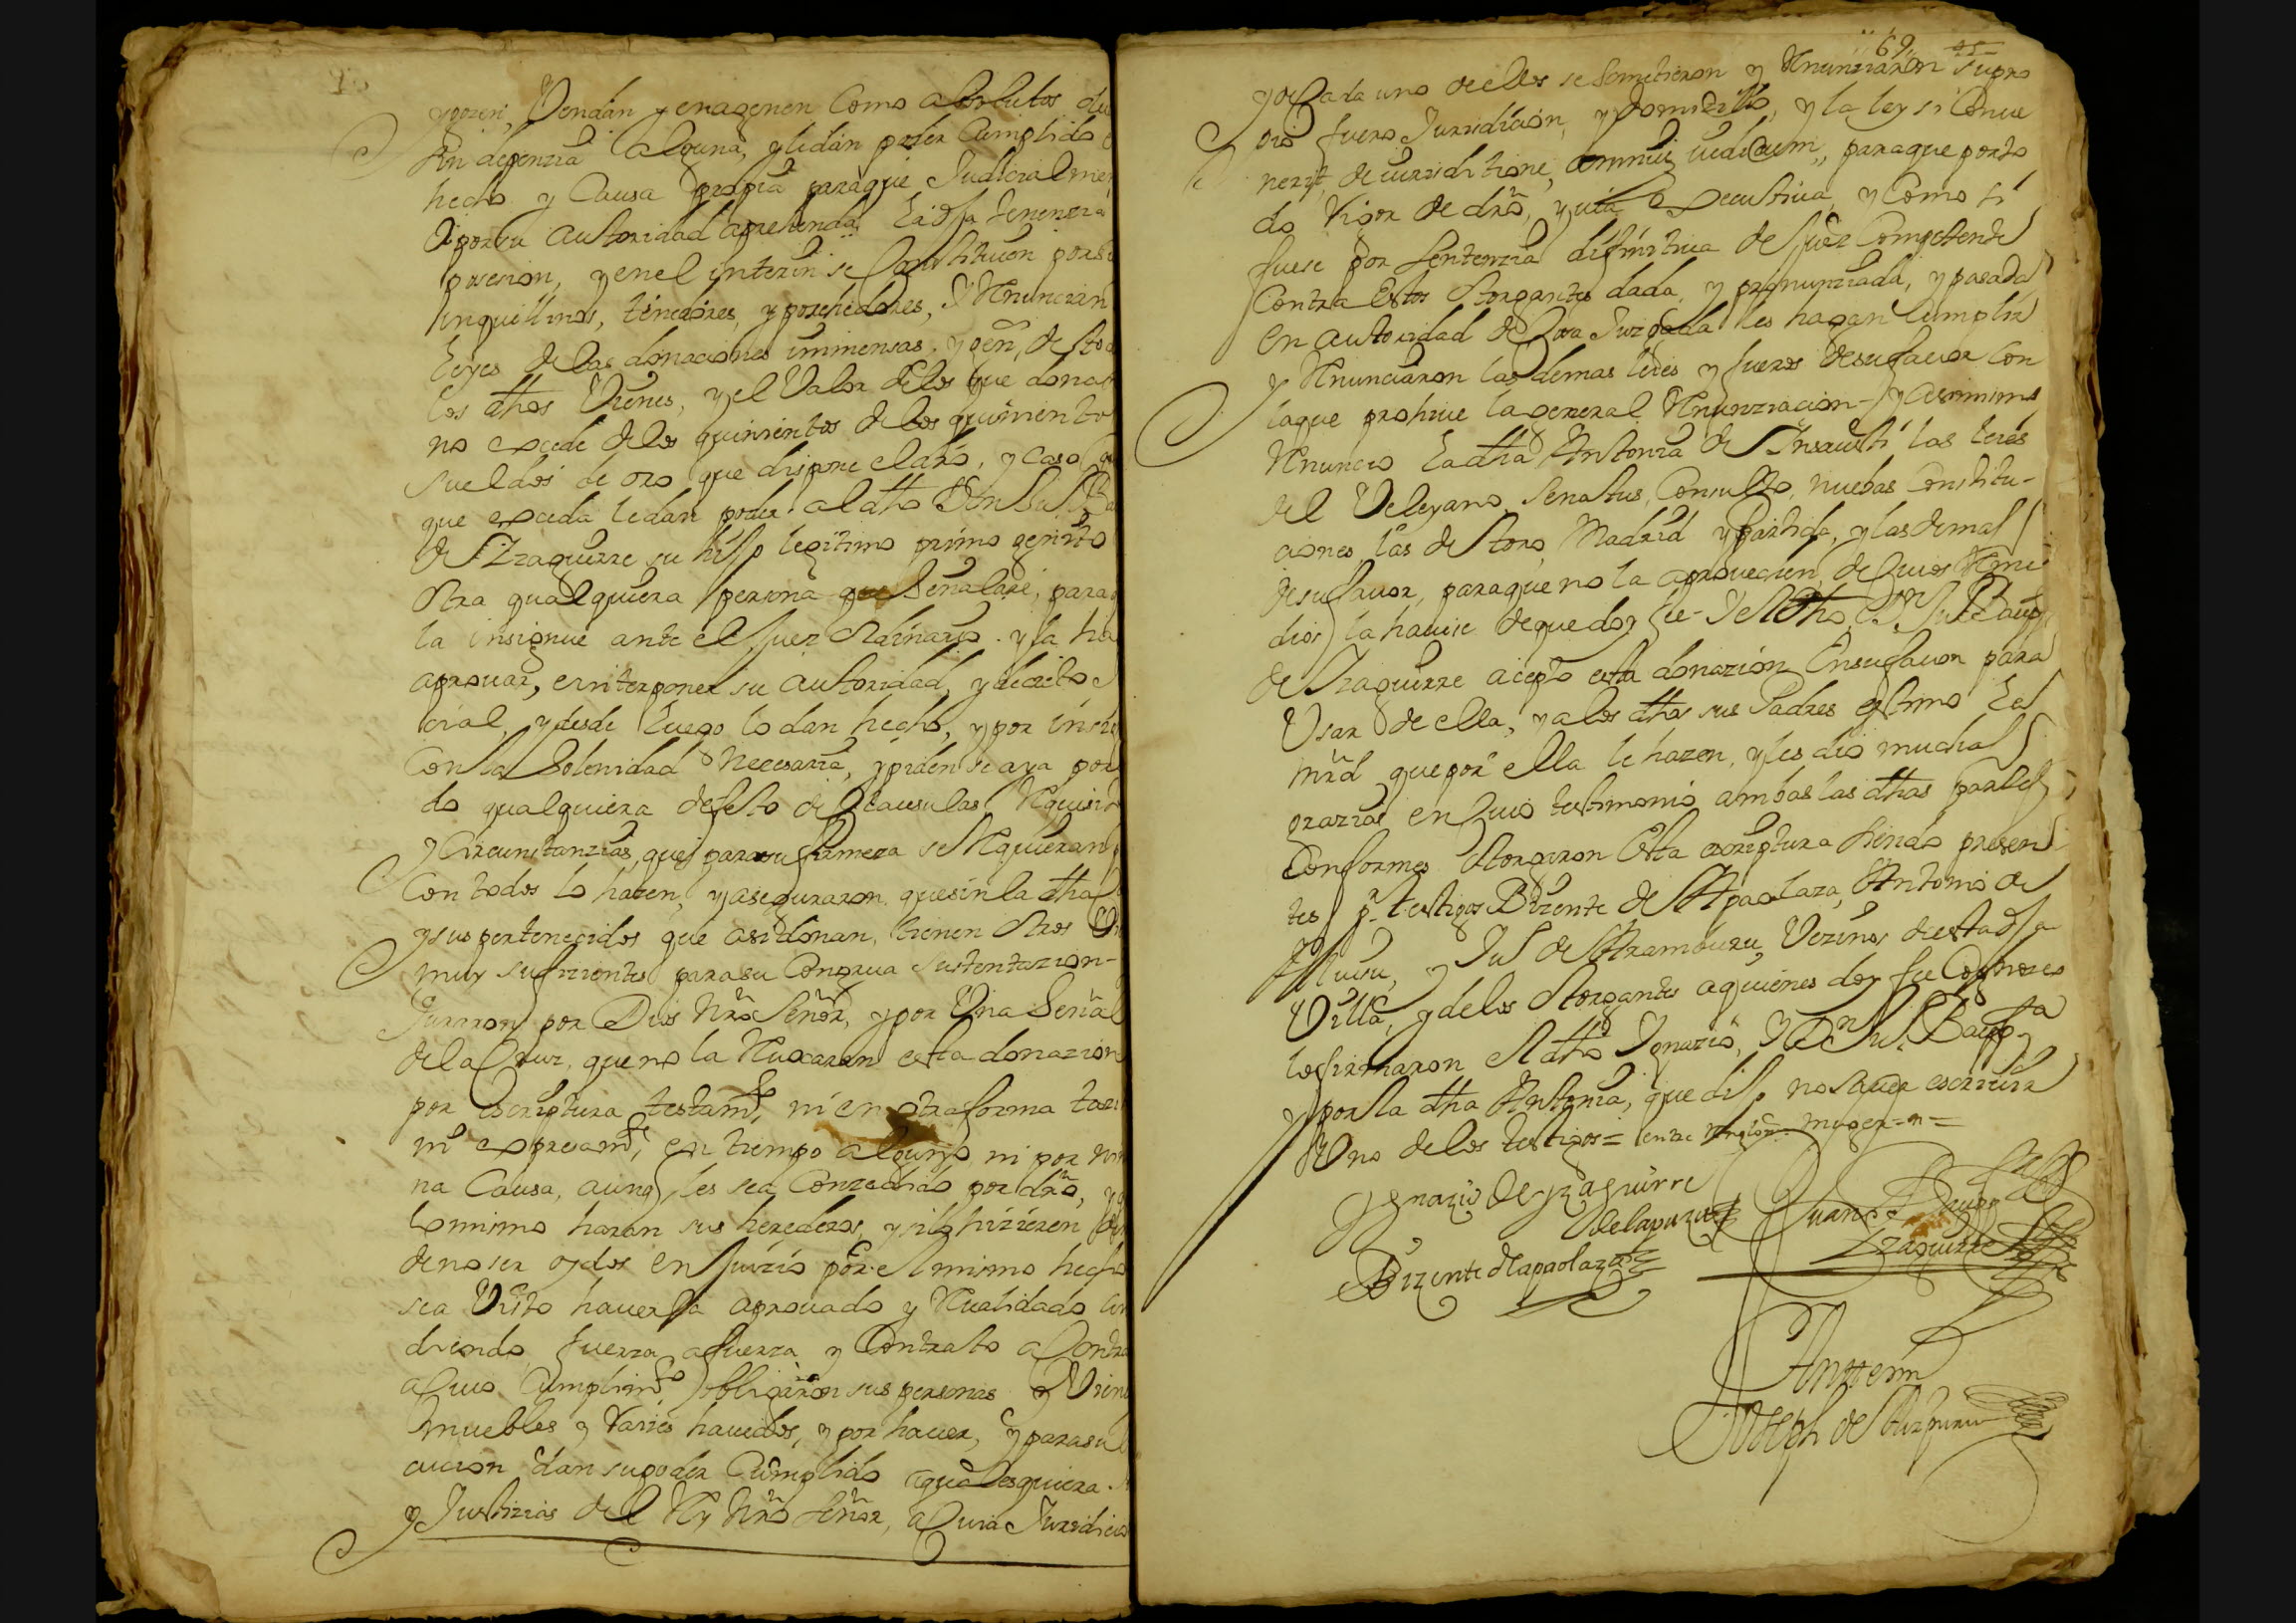 ygozen, Vendan y enagenen Como absolutos du
sin depenzia alguna, y le dan poder Cumplido
hecho y Causa propia paraque Judicialmen
o por su autoridad aprehenda la dha tenenzia
posesion, y en el interin se Constituien por su
inquillinos, tenedores, y poschedores, y Rnuncian
leyes de las donaciones inmensas y gen, de
los dhos Vienes, y el Valor de los que dona
no excede de los quinientos de los quiniento
sueldos de oro que dispone el dro, y caso q
que exceda le dan poder al dho Dn Ju Ba
de Yzaguirre su hijo legitimo primo genito
otra qualquiera persona que Señalare, para
la insignue ante el Juez ordinario y la ha
aprouar, e interponer su autoridad, y decreto
cial, y desde luego lo dan hecho, y por insi
Con la Solenidad necesaria, y piden se aya por
do qualquiera defecto de Clausulas Requisit
y Circunstanzias, que para su firmeza se Requieran
Con todos lo hazen, y aseguraron que sin la dha
y sus pertenecidos que asi donan, tienen otros Vi
muy sufizientes para su Congrua sustentazion-
Juraron por Dios Nro Señor, y por Una Señal
de la Cruz, que no la Reuocaran esta donazion
por escriptura testamto, ni en otra forma tazi
ni expresamte, en tiempo alguno, ni por nin
na Causa, aunq les sea Conzedido por dro, y q
lo mismo haran sus herederos, y si lo hizieren
de no ser oydos en Juizio por el mismo hecho
sea Visto hauerla aprouado y Reualidado
diendo fuerza a fuerza y Contrato a Contra
a Cuio Cumplimto obligaron sus personas y Viene
muebles y Raizes hauidos, y por hauer, y para su
cucion dan su poder Cumplido a qualesquiera
y Justizias del Rey Nro Señor, a Cuia Juridicio
69
y de Cada uno de ellos se sometieron y Rnunziaron su pro
pio fuero Juridicion, y Domizilio, y la ley si Conue
nerit de iurisditione, omnium iudicum,, paraque por to
do Rigor de dro, y via executiua, y Como si
fuese por Sentenzia difinitiua de Juez Competente
Contra estos otorgantes dada, y pronunziada, y pasada
en autoridad de Cosa Juzgada les hagan Cumplir
y Rnunciaron las demas leies y fueros de su fauor Con
la que prohiue la general Rnunziacion- y asimismo
Rnuncio la dha Antonia de Insausti las leies
del Veleyano, Senatus, Consulto, nuebas Constitu-
ciones, las de toro, Madrid y Partida, y las demas
de su fauor, paraque no la aprouechen, de Cuios Reme
dios la hauise de que doy fee- y el dho Dn Ju Baupta
de Yzaguirre acepto esta donazion en su fauor para
Usar de ella, y a los dhos sus Padres estimo la
mrd que por ella le hazen, y les dio muchas
grazias en Cuio testimonio ambas las dhas partes
Conformes otorgaron esta escriptura siendo presen
tes pr testigos Bizente de Apaolaza, Antonio de
y Ju de Aramburu, Vezinos de esta dha
Villa, y de los otorgantes a quienes doy fee Conozco
lo firmaron el dho Ygnazio, y Dn Ju Baupta
y por la dha Antonia, que dijo no Sauer escriuir
Uno de los testigos = entre renglon muger=
Ygnazio de Yzaguirre
Juan Baupta
Yzaguirre
Bizente de apaolaza
Antemi
Joseph de